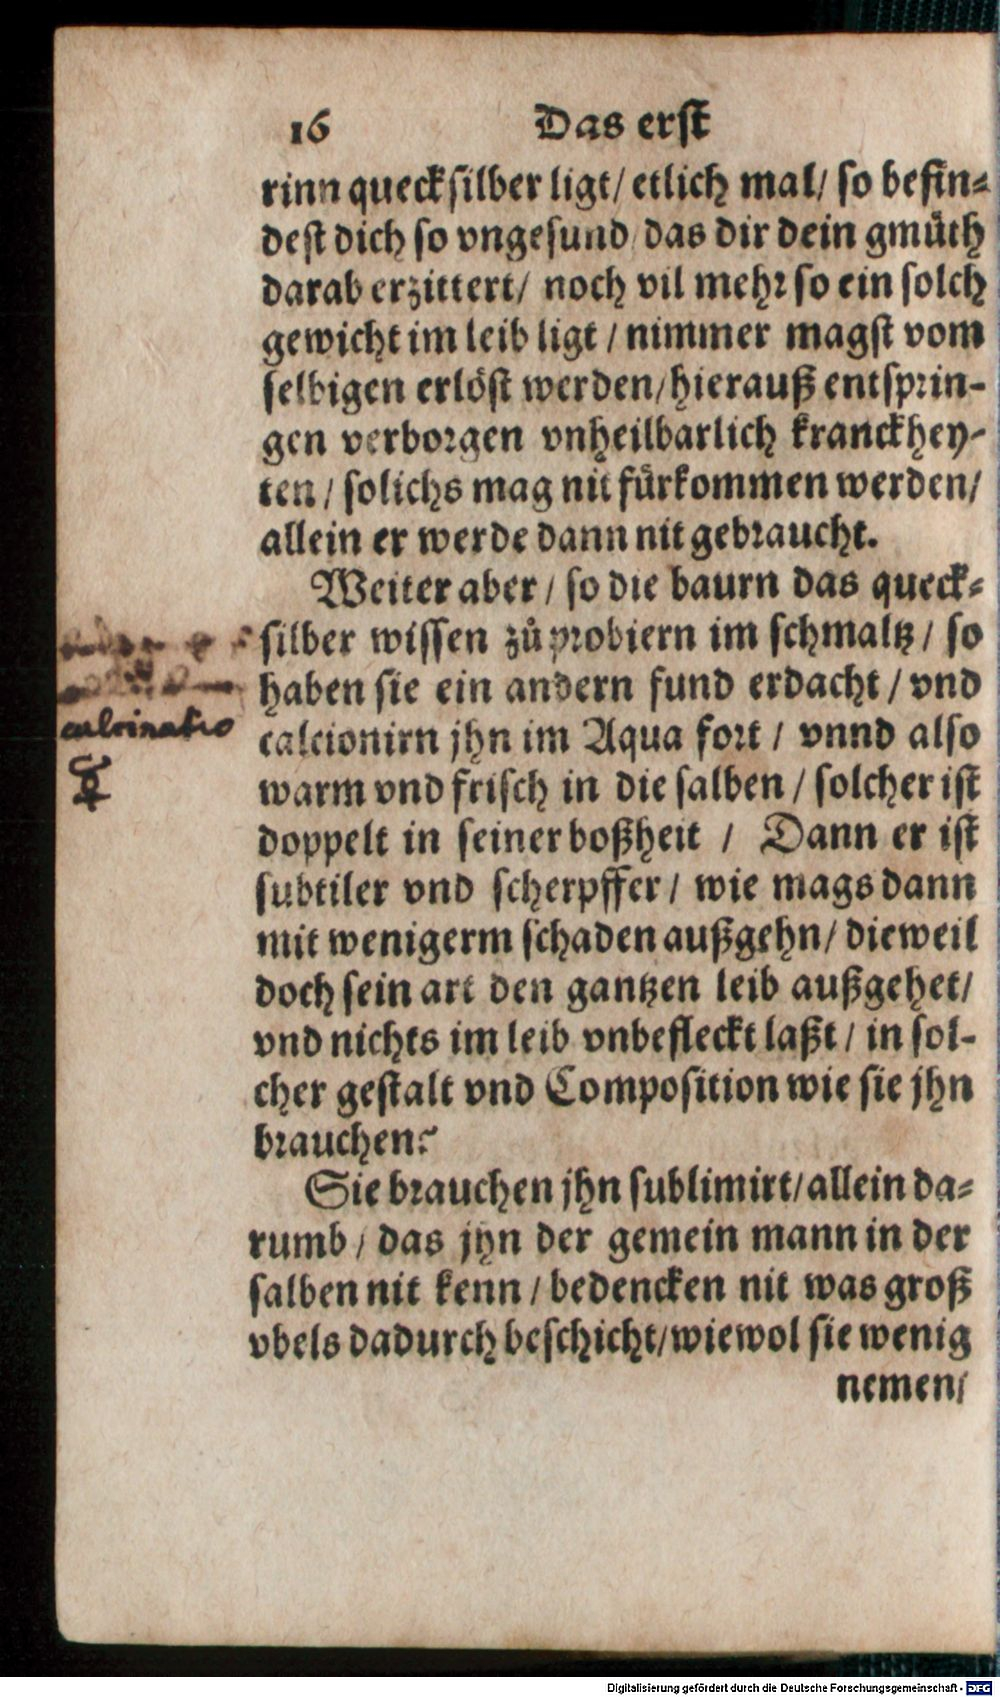 16 Das erst
rinn quecksilber ligt/ etlich mal/ so befin-
dest dich so vngesund/ das dir dein gmüth
darab erzittert/ noch vil mehr so ein solch
gewicht im leib ligt / nimmer magst vom
selbigen erlöst werden/hierauß entsprin-
gen verborgen vnheilbarlich kranckhey-
ten / solichs mag nit fürkommen werden/
allein er werde dann nit gebraucht.
Weiter aber / so die baurn das queck-
silber wissen zů probiern im schmaltz / so
haben sie ein andern fund erdacht / vnd
calcionirn jhn im Aqua fort / vnnd also
warm vnd frisch in die salben / solcher ist
doppelt in seiner boßheit / Dann er ist
subtiler vnd scherpffer / wie mags dann
mit wenigerm schaden außgehn/ dieweil
doch sein art den gantzen leib außgehet/
vnd nichts im leib vnbefleckt laßt / in sol-
cher gestalt vnd Composition wie sie jhn
brauchen?
Sie brauchen jhn sublimirt/allein da-
rumb / das jhn der gemein mann in der
salben nit kenn / bedencken nit was groß
vbels dadurch beschicht/wiewol sie wenig
nemen/
☿
Digitalisierung gefördert durch die Deutsche Forschungsgemeinschaft - DFG